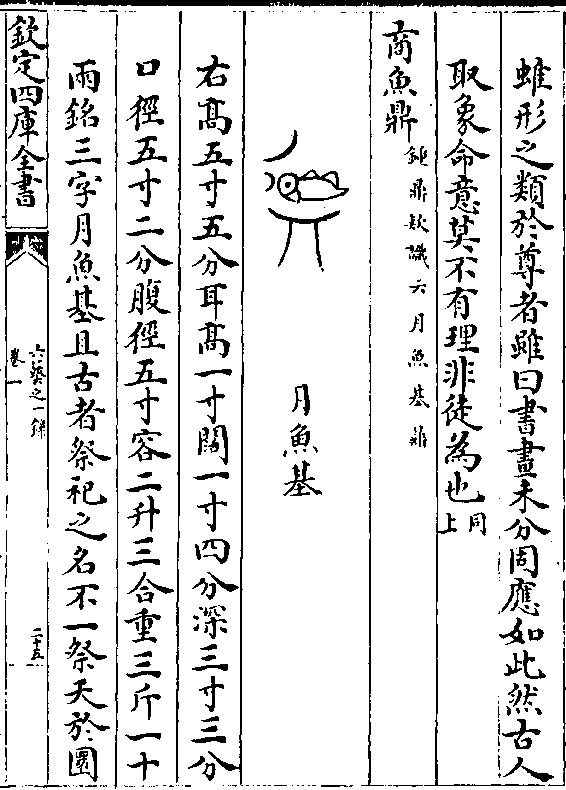 蜼形之類於尊者雖曰書畫未分固應如此然古人
取象命意莫不有理非徒為也同上
商魚鼎鐘鼎欵識云月魚基鼎
月魚基
右髙五寸五分耳髙一寸闊一寸四分深三寸三分
口徑五寸二分腹徑五寸容二升三合重三斤一十
兩銘三字月魚基且古者祭祀之名不一祭天於圜
欽定四庫全書
六藝之一録
卷一
二十五